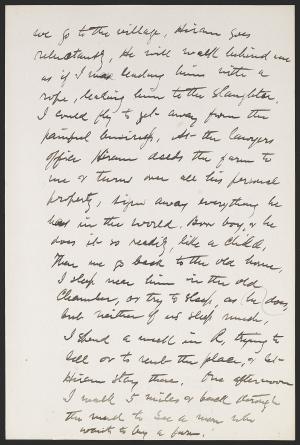 we go to the village, Hiram goes
reluctantly, He will walk behind me
as if I was leading him with a
rope, leading him to the slaughter.
I could fly to get away from the
painful business, At the lawyers
office Hiram deeds the farm to
me & turns over all his personal
property, signs away everything he
has in the world. Poor boy, & he
does it so readily, like a child,
Then we go back to the old home,
I sleep near him in the old
Chamber, or try to sleep, as he does,
but neither of us sleep much
I spend a week in R, trying to
sell or to rent the place, & let
Hiram stay there. One afternoon
I walk 5 miles or back through
the mud to see a man who
wants to buy a farm.